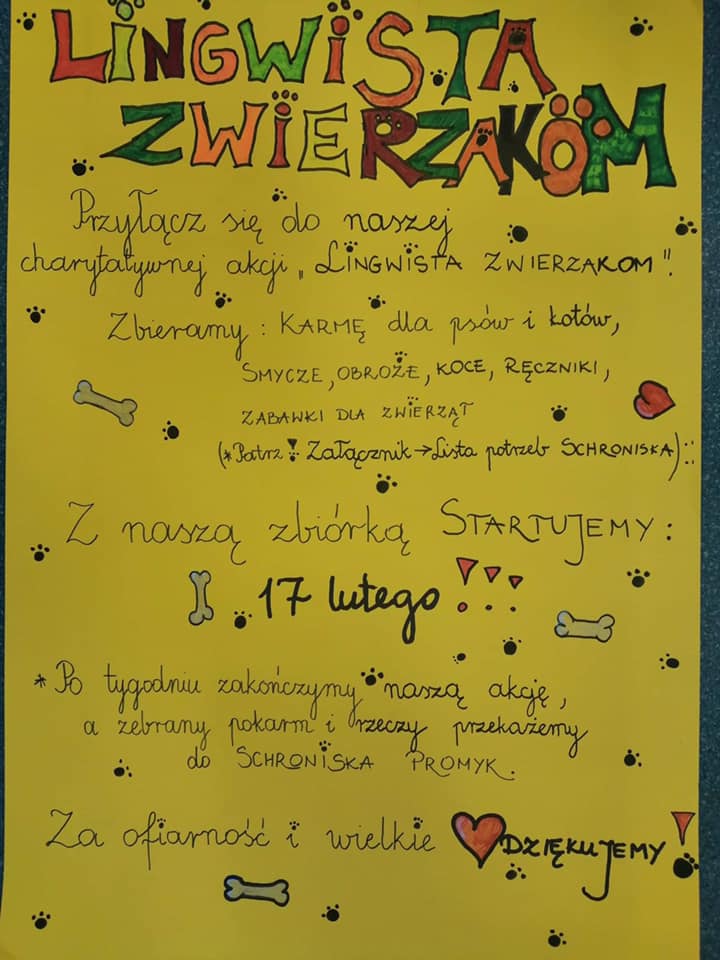 LINGWISTA
ZWIERZAKOM
Przyłącz się do naszej
charytatywnej akcji „LINGWISTA ZWIERZAKOM".
Zbieramy: KARMĘ dla psów i kotów,
SMYCZE, OBROŻE, KOCE, RĘCZNIKI,
ZABAWKI DLA ZWIERZĄT
(*Patrz! Załącznik → Lista potrzeb SCHRONISKA)
Z naszą zbiórką STARTUJEMY:
17 lutego !!!
*Po tygodniu zakończymy naszą akcję,
a zebrany pokarm i rzeczy przekażemy
do SCHRONISKA PROMYK.
Za ofiarność i wielkie ♥ DZIĘKUJEMY!